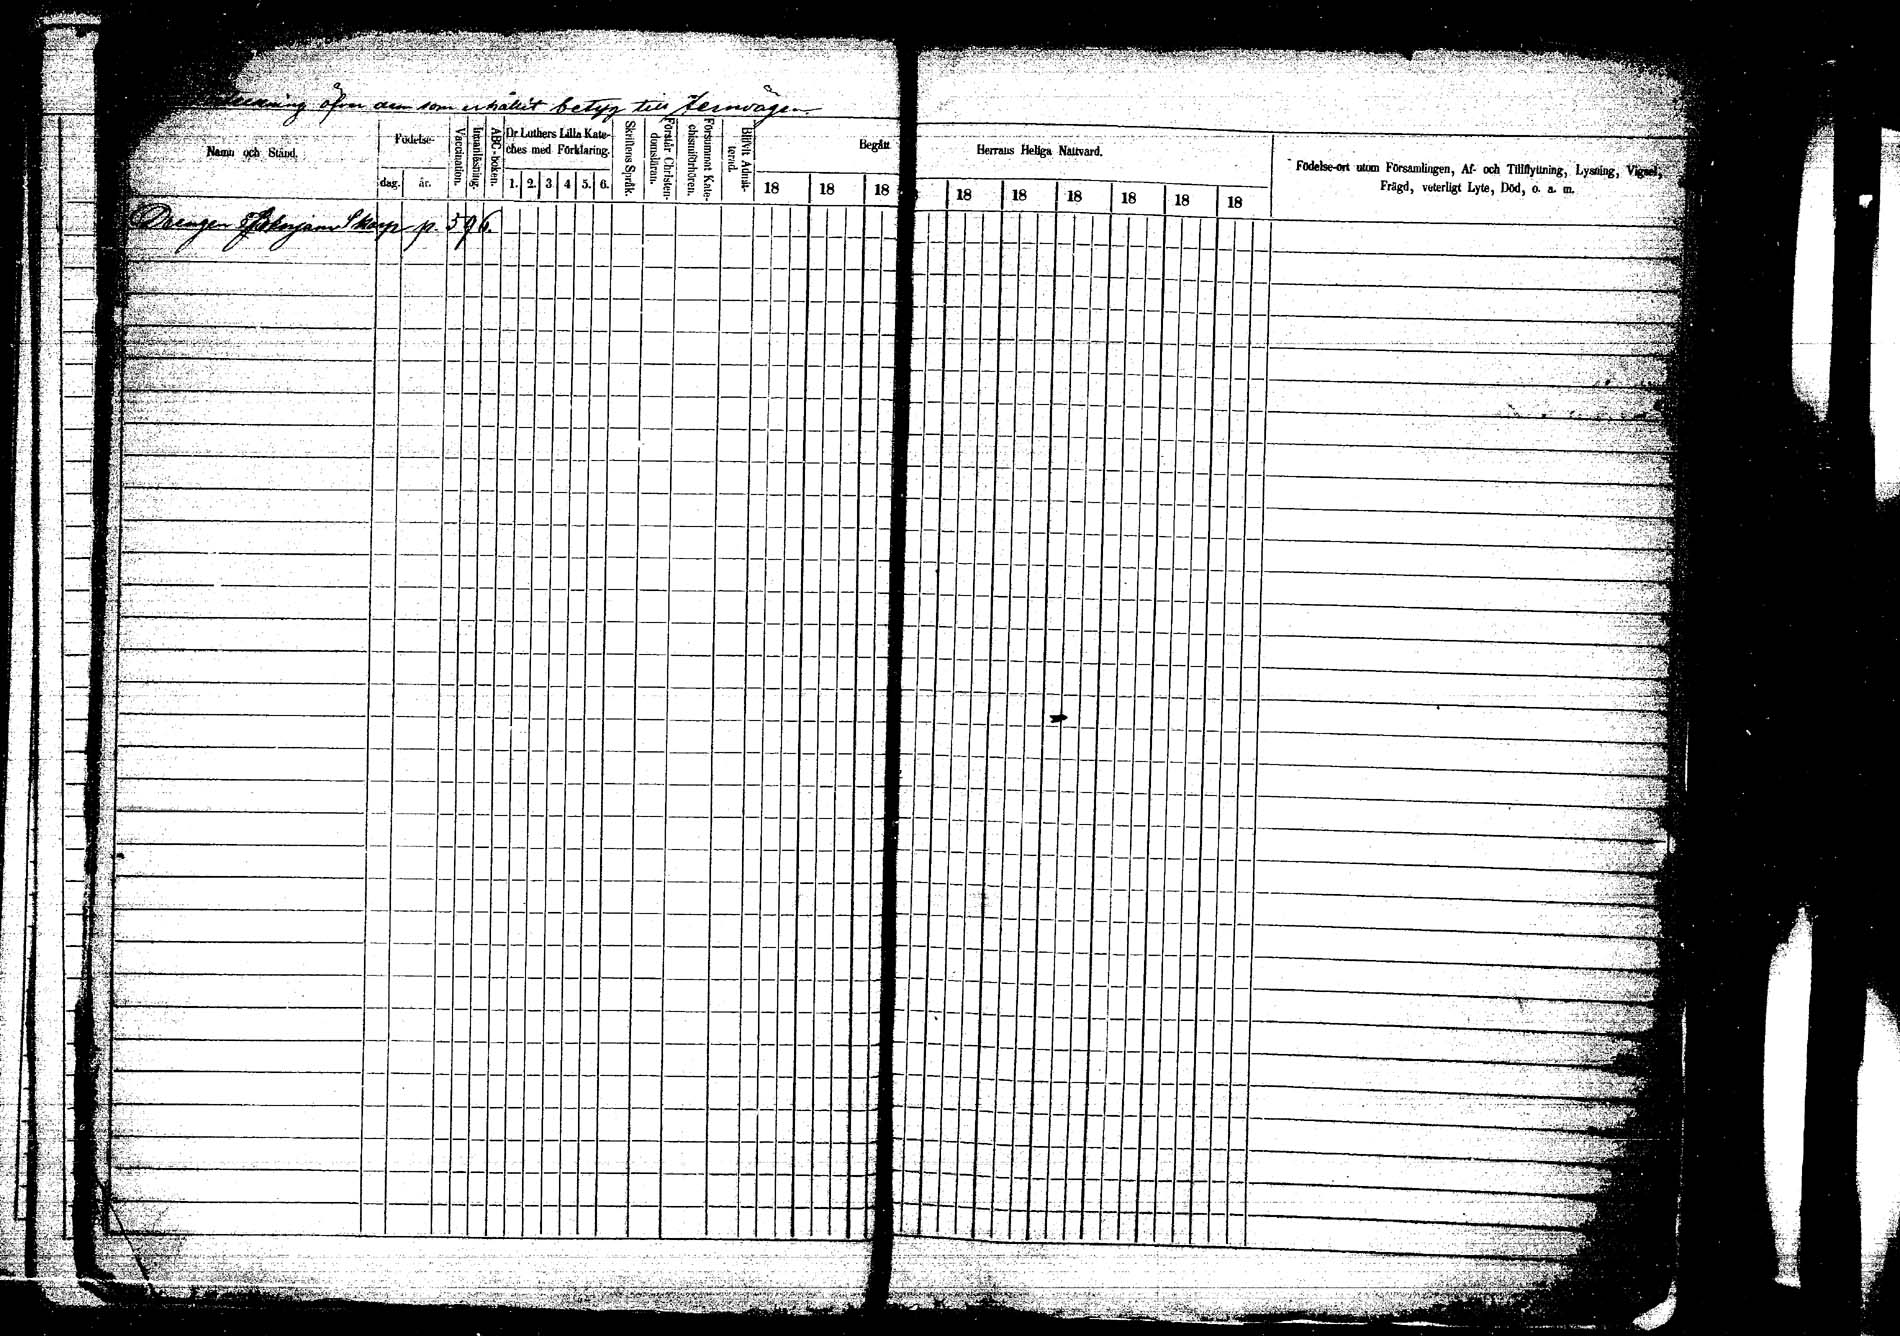 öfver dem som erhållit betyg till Jernvägen
Namn och Stånd.
Födelse-
dag.
år.
Vaccination.
Innanläsning.
ABC-boken.
Dr Luthers Lilla Kate-
ches med Förklaring.
1. 2. 3 4 5. 6.
Skriftens Språk.
Förstår Christen-
domsläran.
Försummat Kate-
chismiförhören.
Blifvit Admit-
terad.
Begått
18 18 18
Herrans Heliga Nattvard.
18 18 18 18 18 18
Födelse-ort utom Församlingen, Af- och Tillflyttning, Lysning, Vigsel,
Frägd, veterligt Lyte, Död, o. a. m.
Drengen Benjam Skarp p. 596.